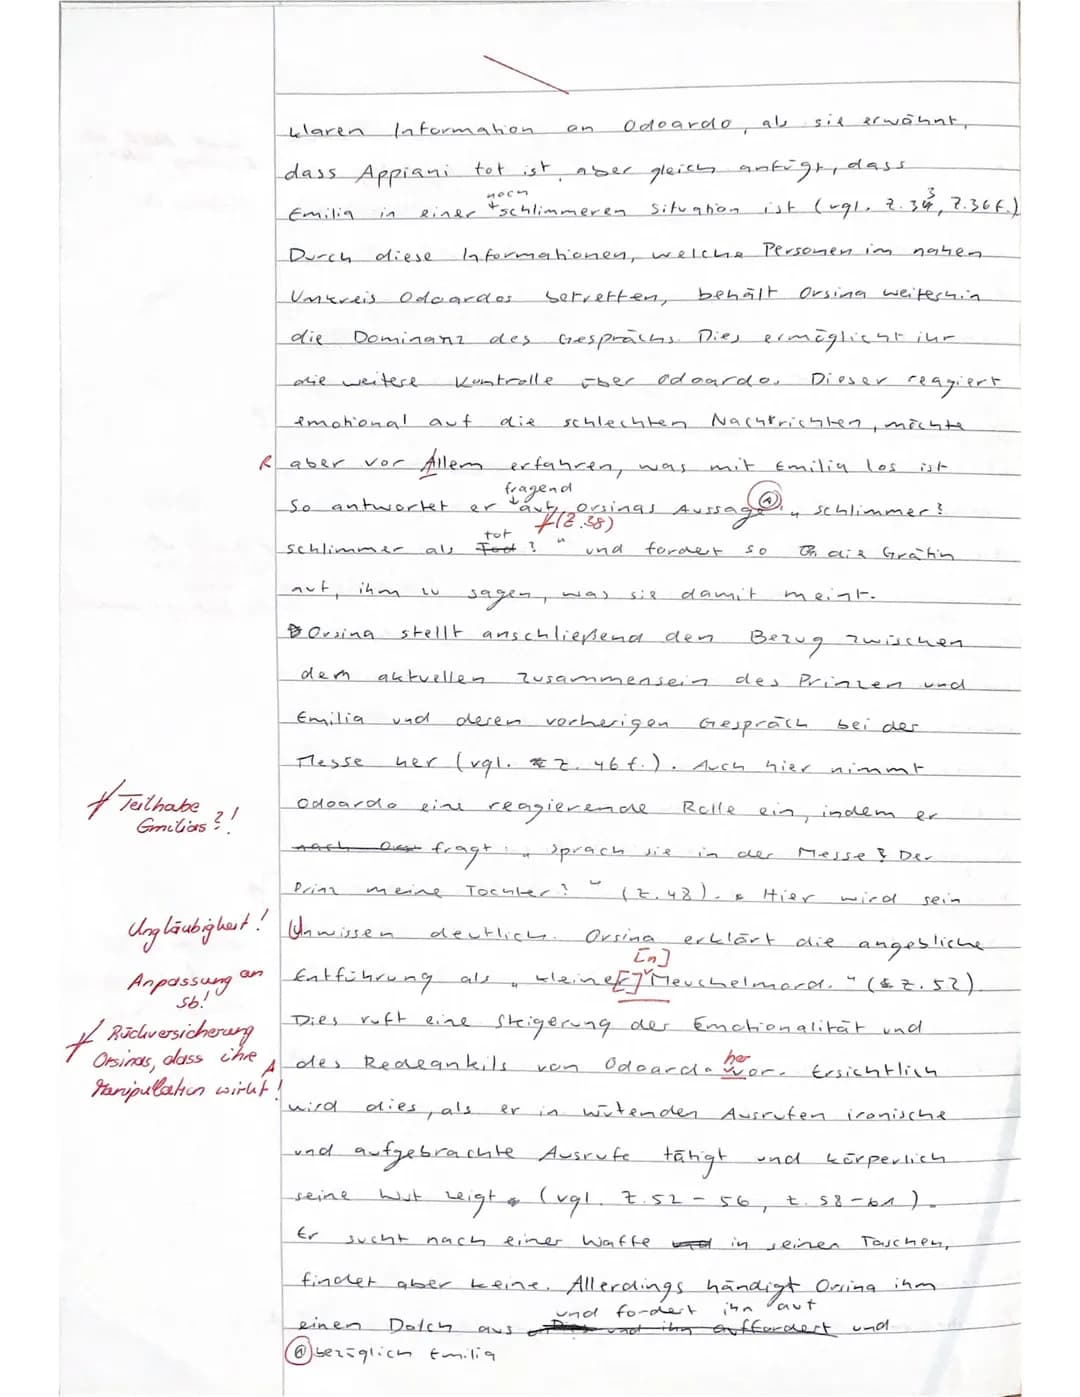 klaren Information an Odoardo, als sie erwähnt,
dass Appiani tot ist, aber gleich anfügt, dass
noch
Emilia in einer schlimmeren Situation ist (vgl. Z. 33, Z. 36 f.)
Durch diese Informationen, welche Personen im nahen
Umkreis Odoardos betreffen, behält Orsina weiterhin
die Dominanz des Gesprächs. Dies ermöglicht ihr
die weitere Kontrolle über Odoardo. Dieser reagiert
emotional auf die schlechten Nachrichten, möchte
R aber vor Allem erfahren, was mit Emilia los ist
fragend
So antwortet er auf Orsinas Aussage Ⓐ „schlimmer?
f (Z.38)
tot
schlimmer als Tod?" und fordert so die Gräfin
auf, ihm zu sagen, was sie damit meint.
Orsina stellt anschließend den Bezug zwischen
dem aktuellen Zusammensein des Prinzen und
Emilia und deren vorherigen Gespräch bei der
Messe her (vgl. Z. 46 f.). Auch hier nimmt
f Teilhabe
Emilias ?!
Odoardo eine reagierende Rolle ein, indem er
nach fragt: „Sprach sie in der Messe? Der
Prinz meine Tochter?" (Z. 48). Hier wird sein
Ungläubigkeit!
Unwissen deutlich. Orsina erklärt die angebliche
[n]
Anpassung an
Sb!
Entführung als „kleine[] Meuchelmord." (Z. 52).
f Rückversicherung
Orsinas, dass ihre
Manipulation wirkt!
Dies ruft eine Steigerung der Emotionalität und
her
A des Redeanteils von Odoardo vor. Ersichtlich
wird dies, als er in wütenden Ausrufen ironische
und aufgebrachte Ausrufe tätigt und körperlich
seine Wut zeigt (vgl. Z. 52 - 56, Z. 58 - 61).
Er sucht nach einer Waffe und in seinen Taschen,
findet aber keine. Allerdings händigt Orsina ihm
und fordert ihn auf
einen Dolch aus und ihn auffordert und
Ⓐ bezüglich Emilia